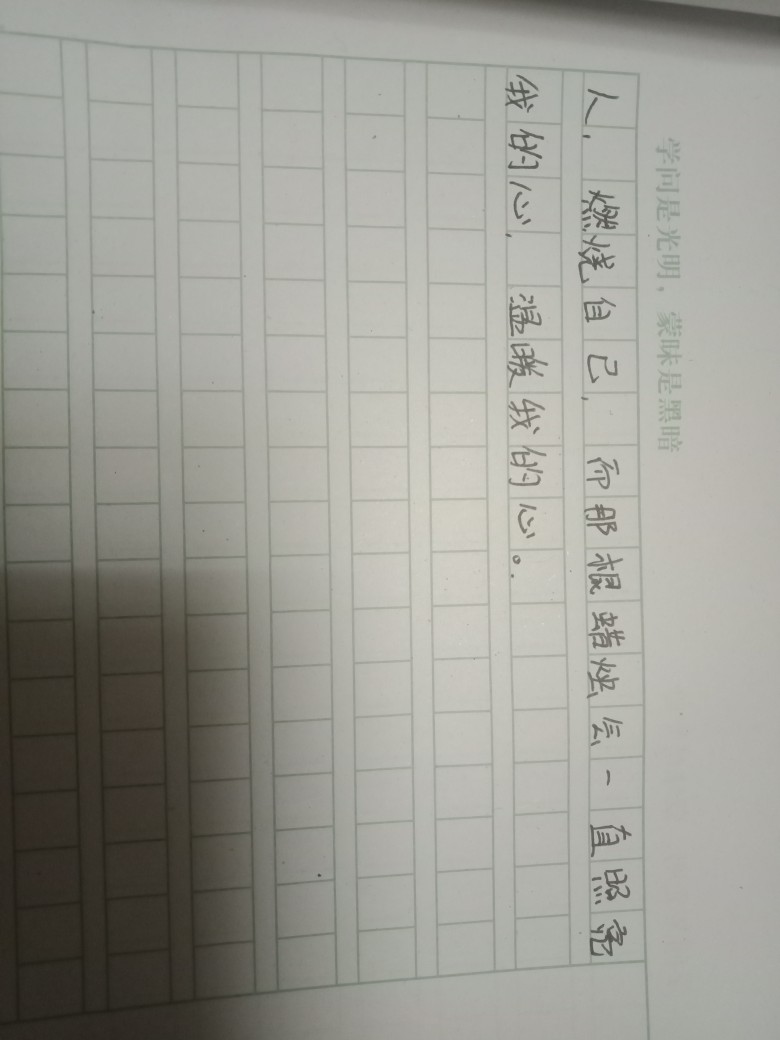 学问是光明，蒙昧是黑暗
人，燃烧自己，而那根蜡烛会一直照亮
我的心，温暖我的心。